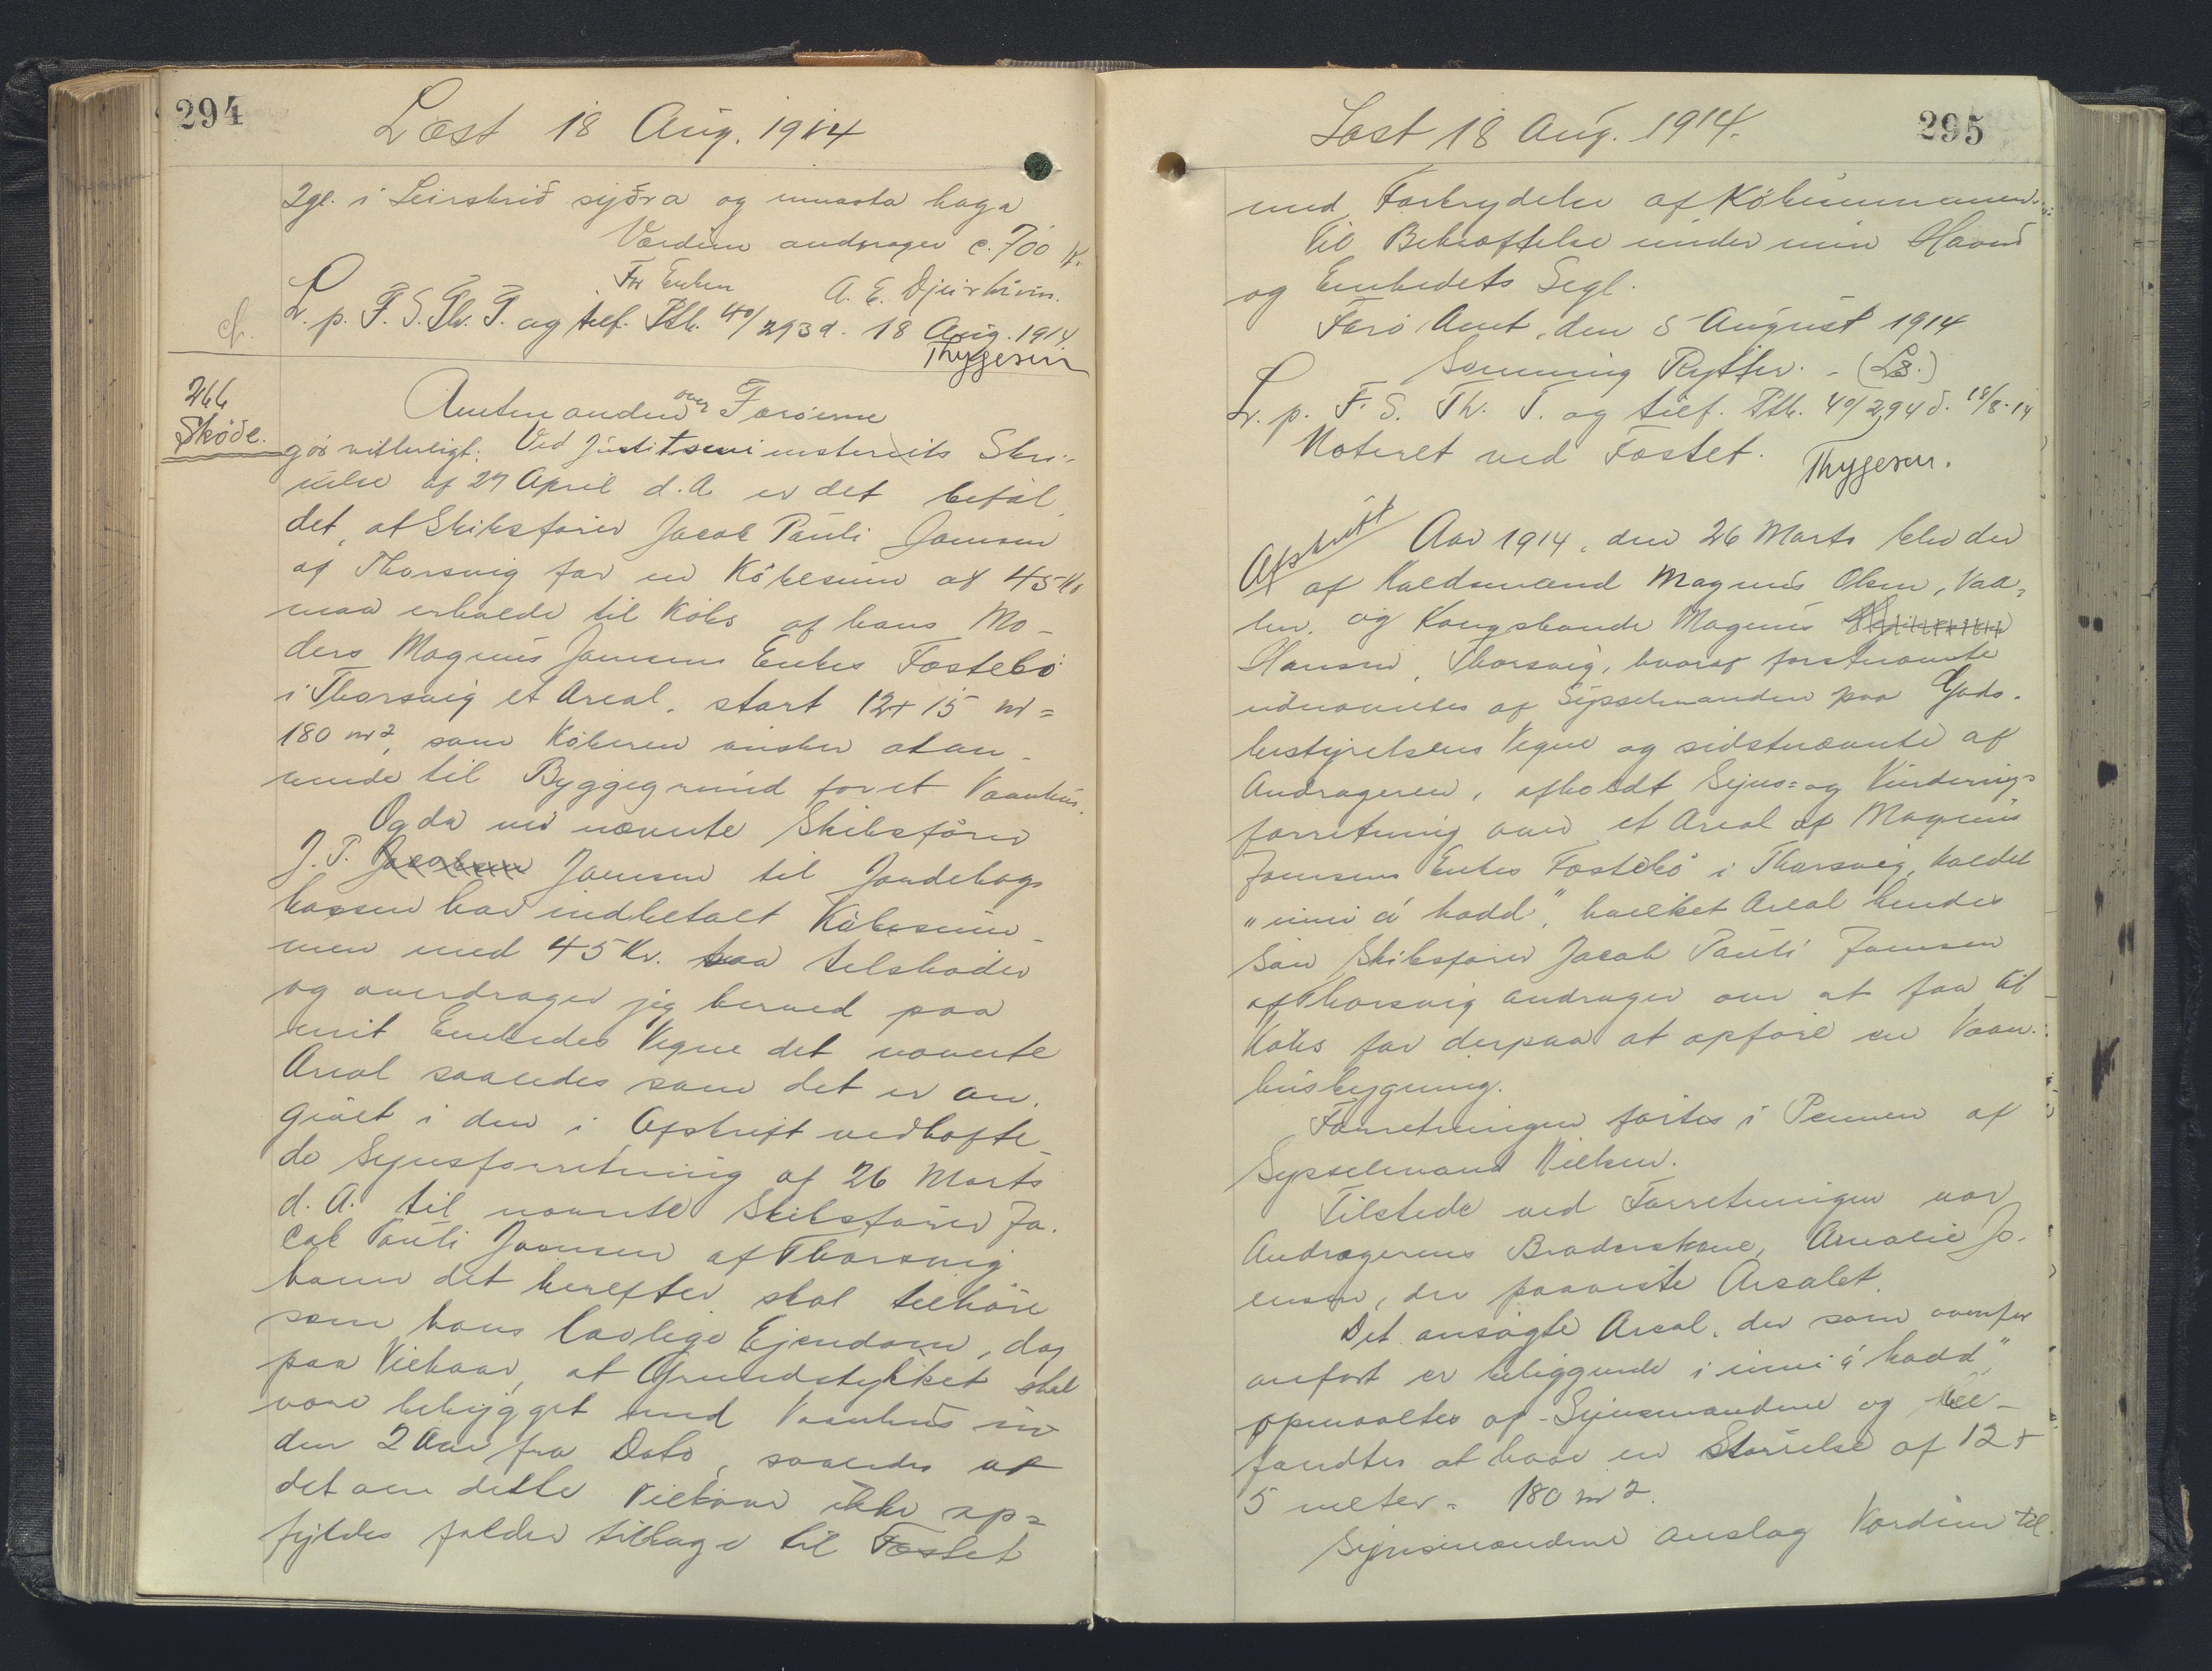 294
Læst 18 Aug. 1914
2gl. i Leirskrið syðra og innasta haga
Værdien andrager c. 700 Kr.
For Enken
A. E. Djurhuus.
cf.
L. p. F. S. Th. T. og tilf. Ptk. 40/293 d. 18 Aug. 1914
Thygesen
266
Skøde.
Amtmanden over Færøerne
gør vitterligt: Ved Justitsministeriets Skri-
velse af 27 April d. A. er det bifal-
det, at Skibsfører Jacob Pauli Joensen
af Thorsvig for en Købesum af 45 Kr
maa erholde til Købs af hans Mo-
ders Magnus Joensens Enkes Fæstebø
i Thorsvig et Areal, stort 12 x 15 m =
180 m2, som Køberen ønsker at an-
vende til Byggegrund for et Vaanhus.
Og da nu nævnte Skibsfører
J. P. Jacobsen Joensen til Jordebogs
kassen har indbetalt Købesum-
men med 45 Kr. saa tilskøder
og overdrager jeg herved paa
mit Embedes Vegne det nævnte
Areal saaledes som det er an-
givet i den i Afskrift vedhæfte-
de Synsforretning af 26 Marts
d. A. til nævnte Skibsfører Ja-
cob Pauli Joensen af Thorsvig
hvem det herefter skal tilhøre
som hans lovlige Ejendom, dog
paa Vilkaar, at Grundstykket skal
være bebygget med Vaanhus in-
den 2 Aar fra Dato, saaledes at
det om dette Vilkaar ikke op=
fyldes falder tilbage til Fæstet
295
Læst 18 Aug. 1914.
med Fortrydelse af Købesummen.
Til Bekræftelse under min Haand
og Embedets Segl.
Færø Amt, den 5 August 1914
Svenning Rytter. - (LS.)
L. p. F. S. Th. T. og tilf. Ptk. 40/294 d. 18/8-14
Noteret ved Fæstet.
Thygesen.
Afskrift
Aar 1914, den 26 Marts blev der
af Kaldsmand Magnus Olsen, Vaa-
len, og Kongsbonde Magnus
Hansen, Thorsvig, hvoraf førstnævnte
udnævntes af Sysselmanden paa Gods-
bestyrelsens Vegne og sidstnævnte af
Andrageren, afholdt Syns= og Vurderings=
forretning over et Areal af Magnus
Joensens Enkes Fæstebø i Thorsvig, kaldet
"inni á hadd", hvilket Areal hendes
Søn Skibsfører Jacob Pauli Joensen
af Thorsvig andrager om at faa til
Købs for derpaa at opføre en Vaan-
husbygning.
Forretningen førtes i Pennen af
Sysselmand Nielsen.
Tilstede ved Forretningen var
Andragerens Broderskone, Amalie Jo-
ensen, der paaviste Arealet.
Det ansøgte Areal, der som ovenfor
anført er beliggende i "inni á hadd",
opmaaltes af Synsmændene og be-
fandtes at have en Størrelse af 12 x
5 meter = 180 m2.
Synsmændene anslog Værdien til